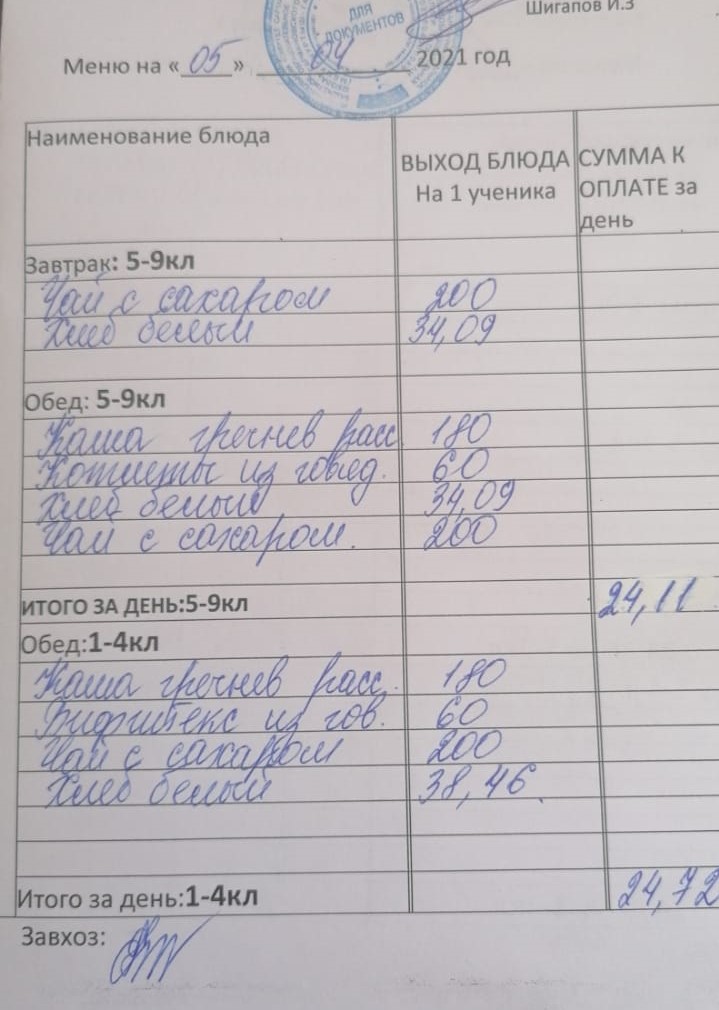 Шигапов И.З
ДЛЯ
ДОКУМЕНТОВ
Меню на «05» 04 2021 год
Наименование блюда
ВЫХОД БЛЮДА
На 1 ученика
СУММА К
ОПЛАТЕ за
день
Завтрак: 5-9кл
Чай с сахаром 200
Хлеб белый 34,09
Обед: 5-9кл
Каша гречнев расс. 180
Котлеты из говяд. 60
Хлеб белый 34,09
Чай с сахаром. 200
ИТОГО ЗА ДЕНЬ:5-9кл 24,11
Обед:1-4кл
Каша гречнев расс. 180
Бифштекс из гов. 60
Чай с сахаром 200
Хлеб белый 38,46.
Итого за день:1-4кл 24,72
Завхоз: